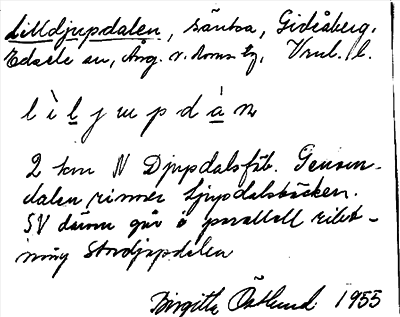 Lilldjupdalen, sänka, Gideåberg,
Edsele sn, Ång. v. Doms. tg, Vnl. l.
l ì l j u p d à n
2 km N Djupdalsfäb. Genom-
dalen rinner Djupdalsbäcken.
SV därom går i parallell rikt-
ning Stordjupdalen
Birgitta Östlund 1955